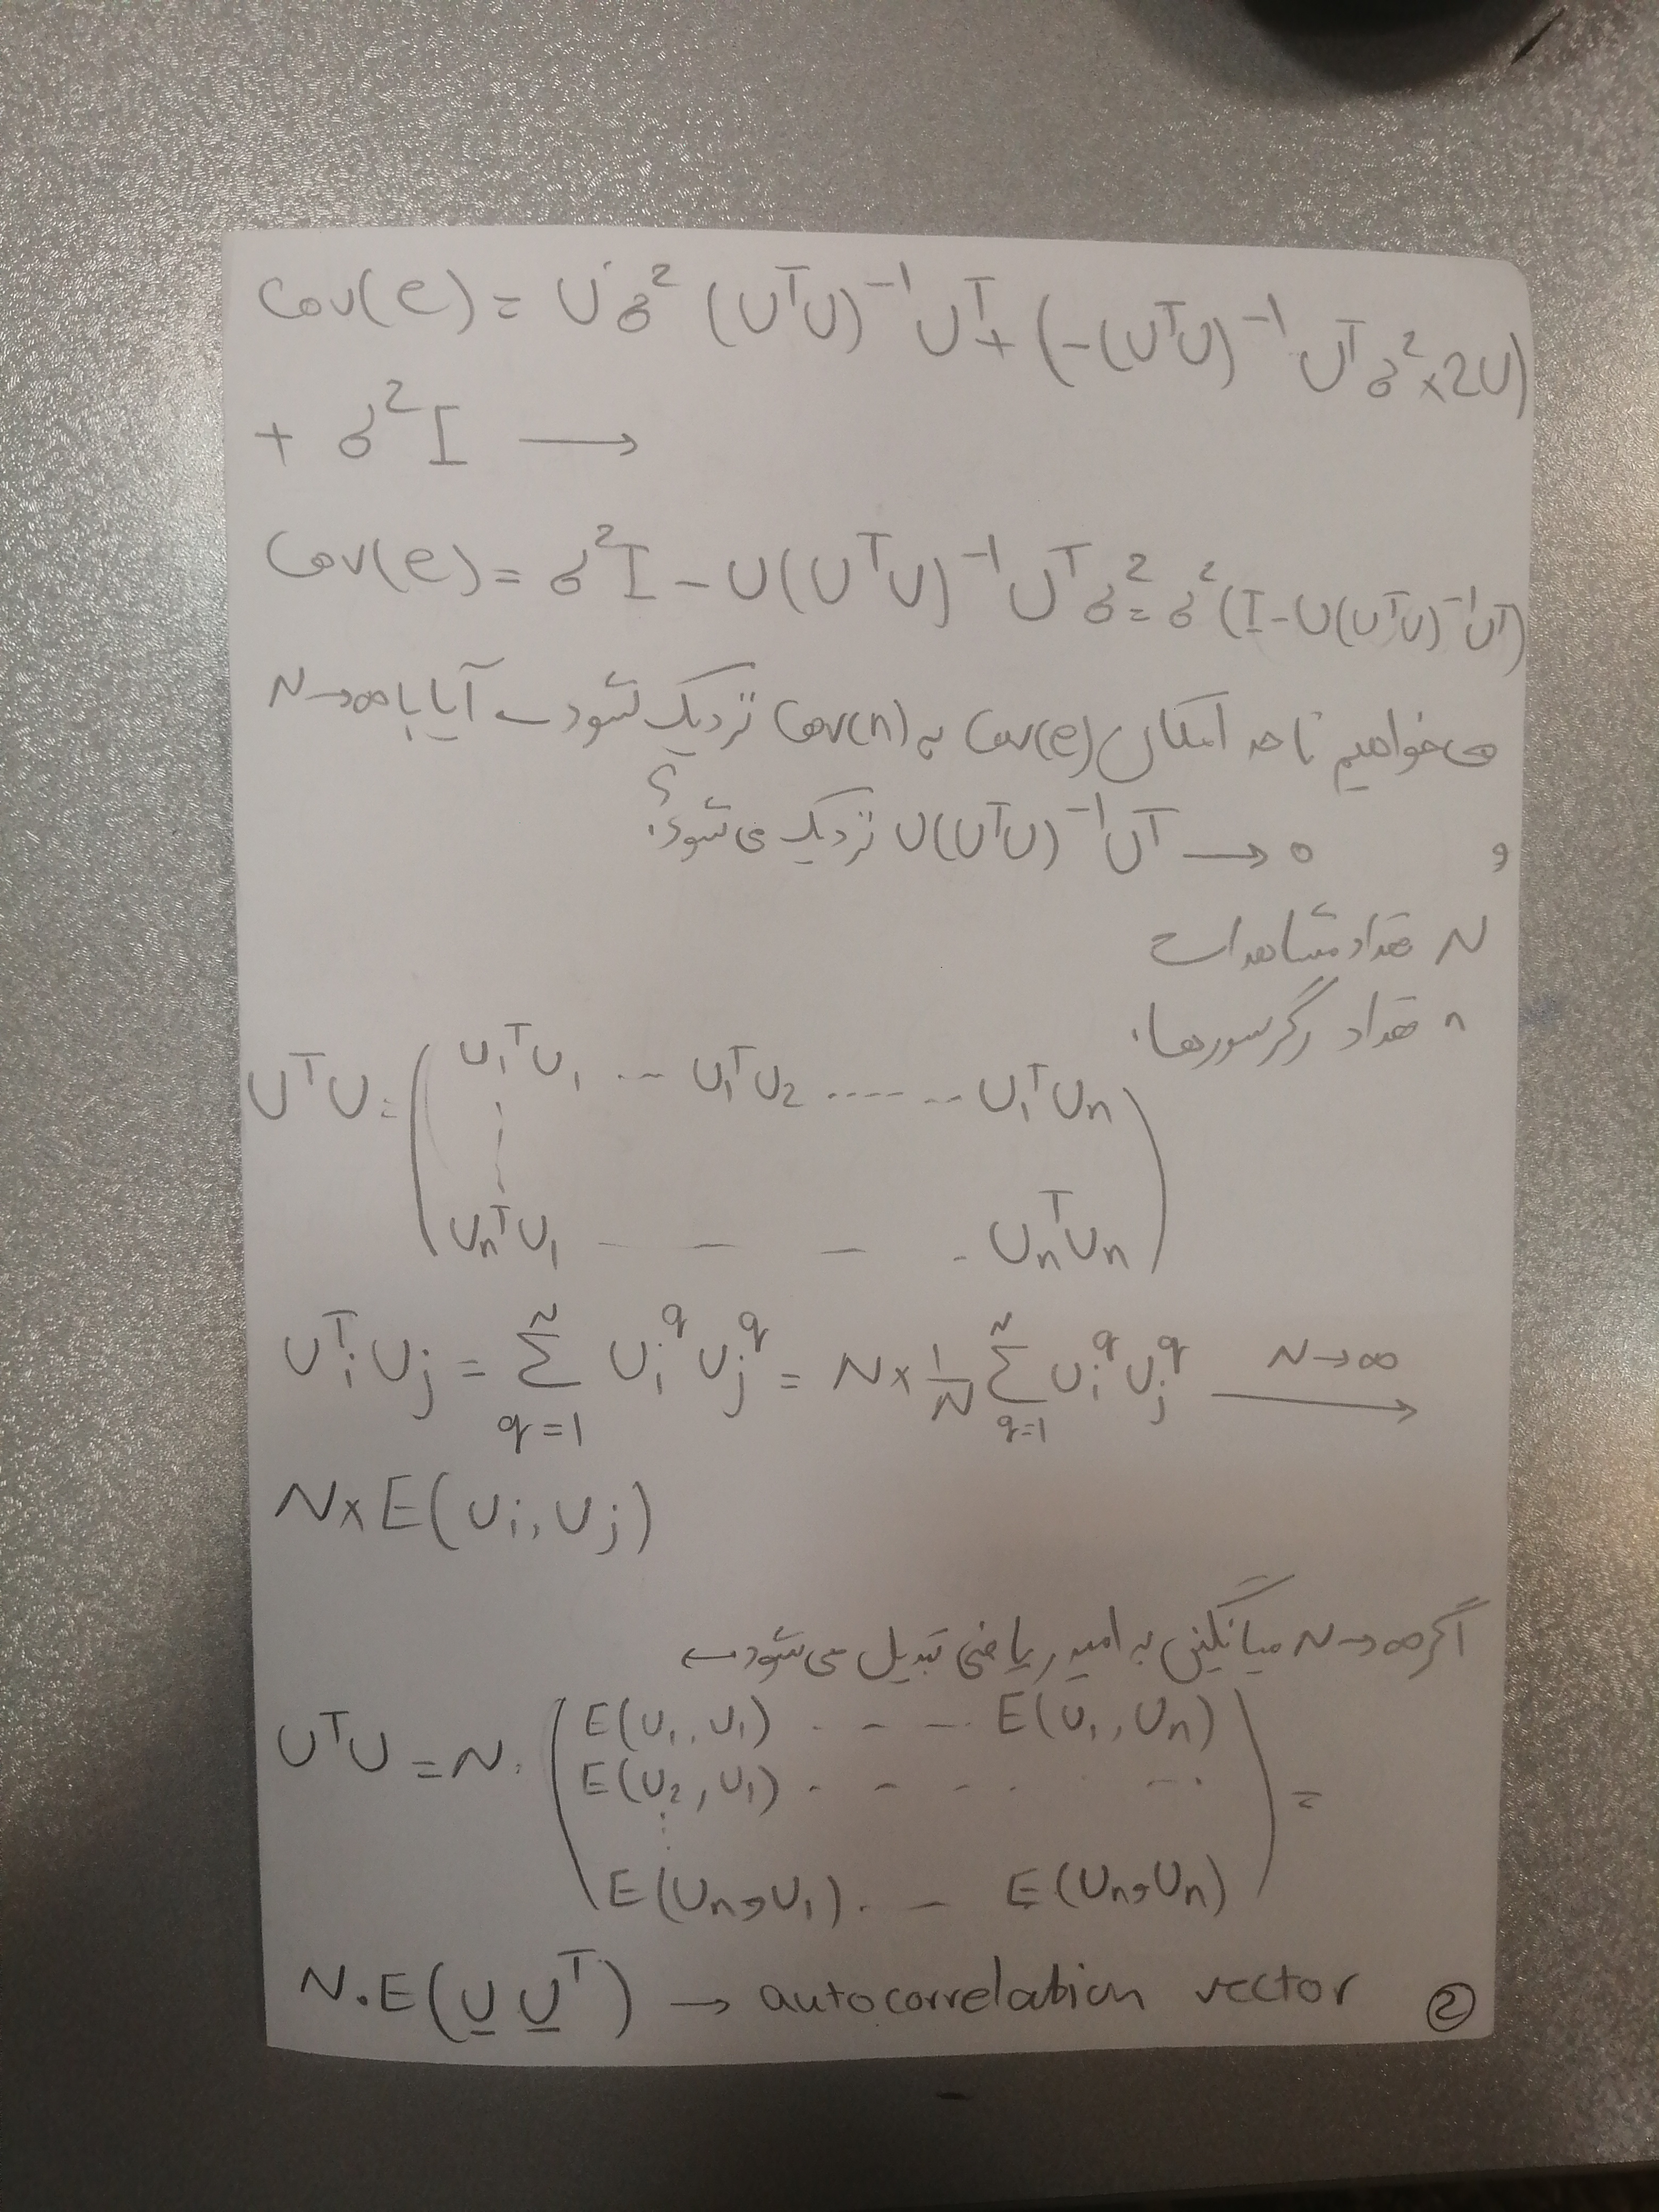 Cov(e) = Uσ² (UᵀU)⁻¹Uᵀ + (-(UᵀU)⁻¹Uᵀσ²×2U)
+ σ²I →
Cov(e) = σ²I - U(UᵀU)⁻¹Uᵀσ² = σ²(I-U(UᵀU)⁻¹Uᵀ)
می‌خواهیم تا حد امکان Cov(e) به Cov(n) نزدیک شود → آیا با N→∞
و U(UᵀU)⁻¹Uᵀ → 0 نزدیک می‌شود؟
N تعداد مشاهدات
n تعداد رگرسورها.
UᵀU = ( U₁ᵀU₁ ... U₁ᵀU₂ ........ U₁ᵀUₙ
Uₙᵀ U₁ - - - . UₙᵀUₙ )
UᵢᵀUⱼ = Σ_{q=1}^{N} Uᵢ^q Uⱼ^q = N × 1/N Σ_{q=1}^{N} Uᵢ^q Uⱼ^q N→∞ →
N×E(Uᵢ, Uⱼ)
اگر N→∞ میانگین به امید ریاضی تبدیل می‌شود ←
UᵀU = N. ( E(U₁, U₁) . - - - E(U₁, Uₙ)
E(U₂, U₁) . - - . ...
E(Uₙ, U₁). - E(Uₙ, Uₙ) ) =
N.E(U Uᵀ) → autocorrelation vector ②